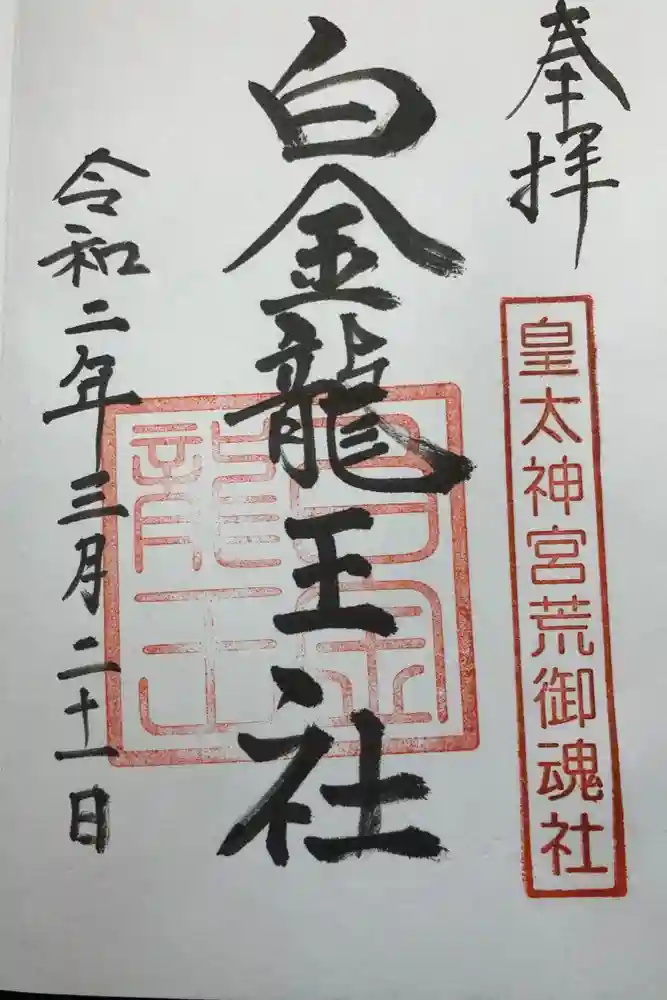 奉拝
皇太神宮荒御魂社
白金龍王社
白金龍王
令和二年三月二十一日